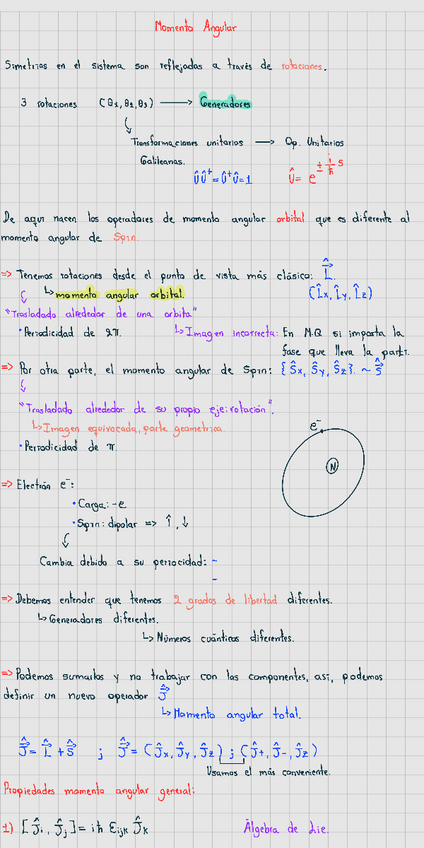 Momento Angular
Simetrías en el sistema son reflejadas a través de rotaciones.
3 rotaciones (θ₁, θ₂, θ₃) ⟶ Generadores
Transformaciones unitarios ⟶ Op. Unitarios
Galileanas.
ÛÛ⁺=Û⁺Û=1 Û= e^{± i/ħ S}
De aquí nacen los operadores de momento angular orbital que es diferente al
momento angular de Spin.
=> Tenemos rotaciones desde el punto de vista más clásico: L̂
↳ momento angular orbital. (L̂x, L̂y, L̂z)
"Trasladado alrededor de una orbita"
• Periodicidad de 2π. ↳ Imagen incorrecta: En M.Q si importa la
fase que lleva la partí.
=> Por otra parte, el momento angular de Spin: {Ŝx, Ŝy, Ŝz} ~ Ŝ
"Trasladado alrededor de su propio eje: rotación".
↳ Imagen equivocada, parte geometrica.
• Periodicidad de π
e⁻
N
=> Electrón e⁻:
• Carga: -e
• Spin: dipolar => ↑, ↓
Cambia debido a su periocidad: -
-
=> Debemos entender que tenemos 2 grados de libertad diferentes.
↳ Generadores diferentes.
↳ Números cuánticos diferentes.
=> Podemos sumarlos y no trabajar con las componentes, así, podemos
definir un nuevo operador Ĵ
↳ Momento angular total.
Ĵ = L̂ + Ŝ ; Ĵ = (Ĵx, Ĵy, Ĵz) ; (Ĵ+, Ĵ-, Ĵz)
Usamos el más conveniente.
Propiedades momento angular general:
1) [Ĵi, Ĵj] = iħ Ɛijk Ĵk Álgebra de Lie.